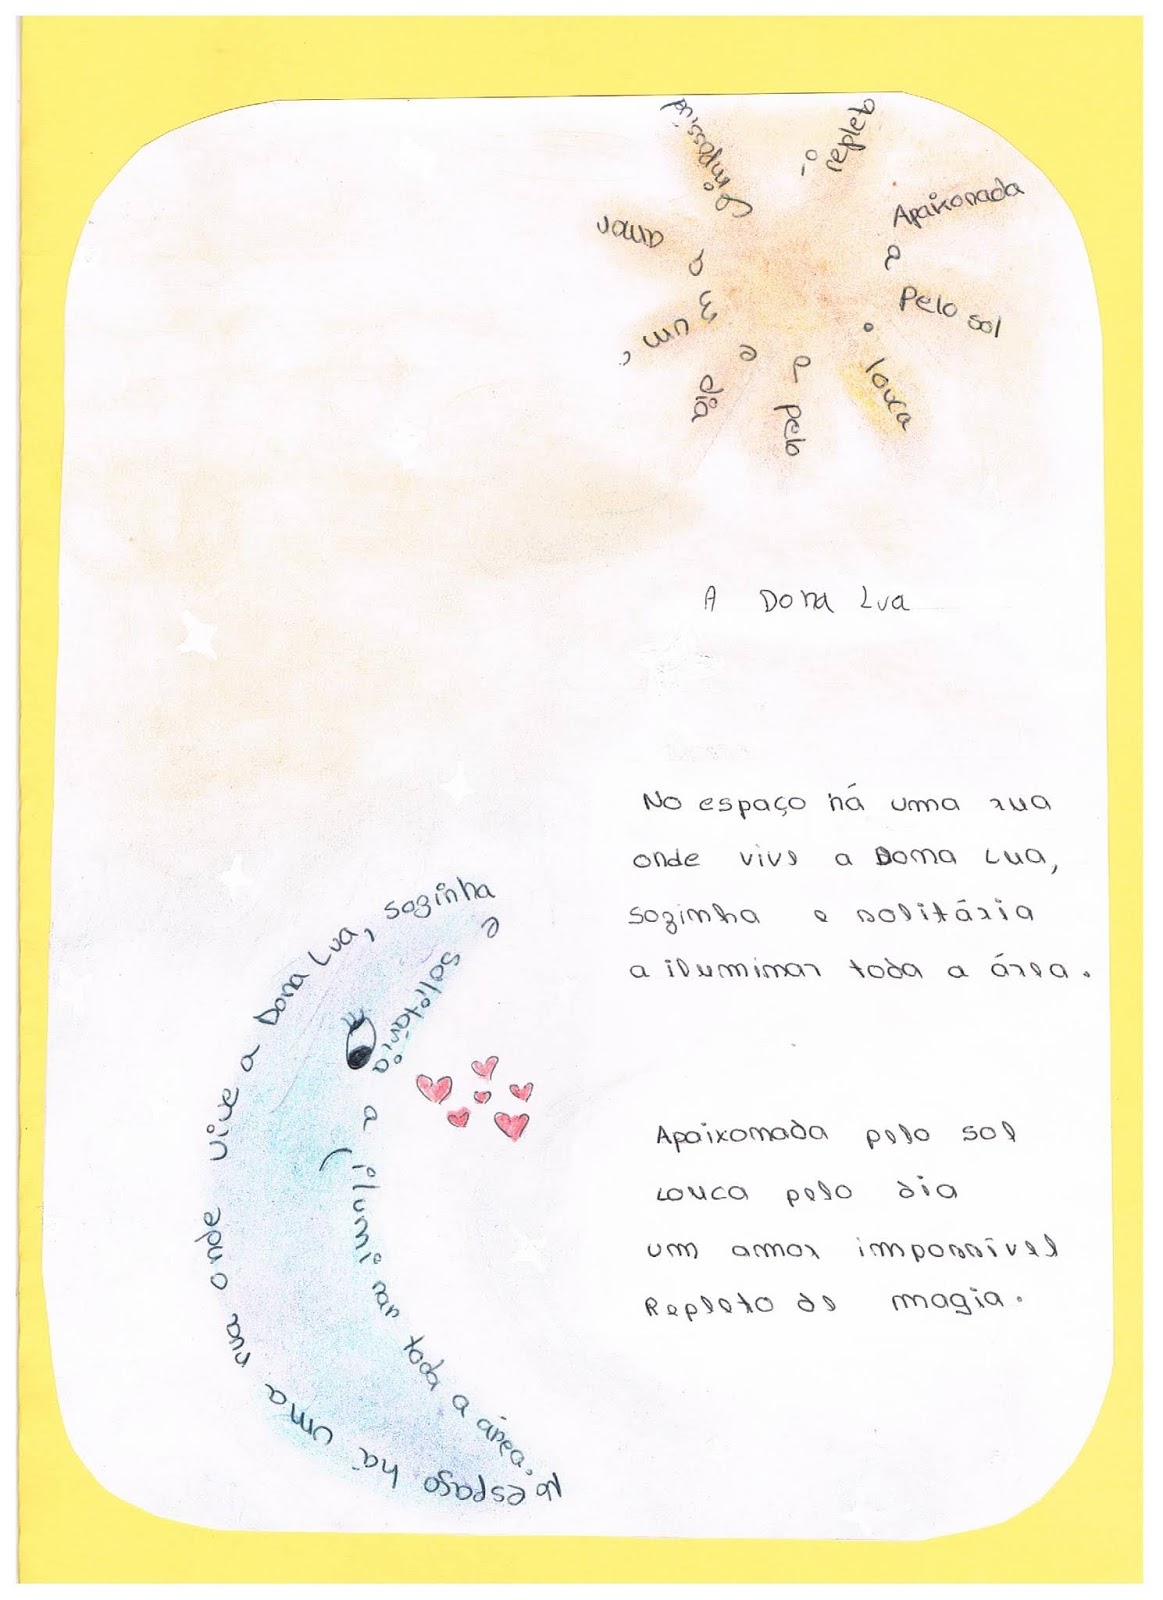 Apaixonada
pelo sol
louca
pelo
dia
um
amor
impossível
repleto
A Dona Lua
No espaço há uma rua
onde vive a Dona Lua,
sozinha e solitária
a iluminar toda a área.
Apaixonada pelo sol
Louca pelo dia
um amor impossível
Repleto de magia.
No espaço há uma rua onde vive a Dona Lua, sozinha
e solitária a iluminar toda a área.